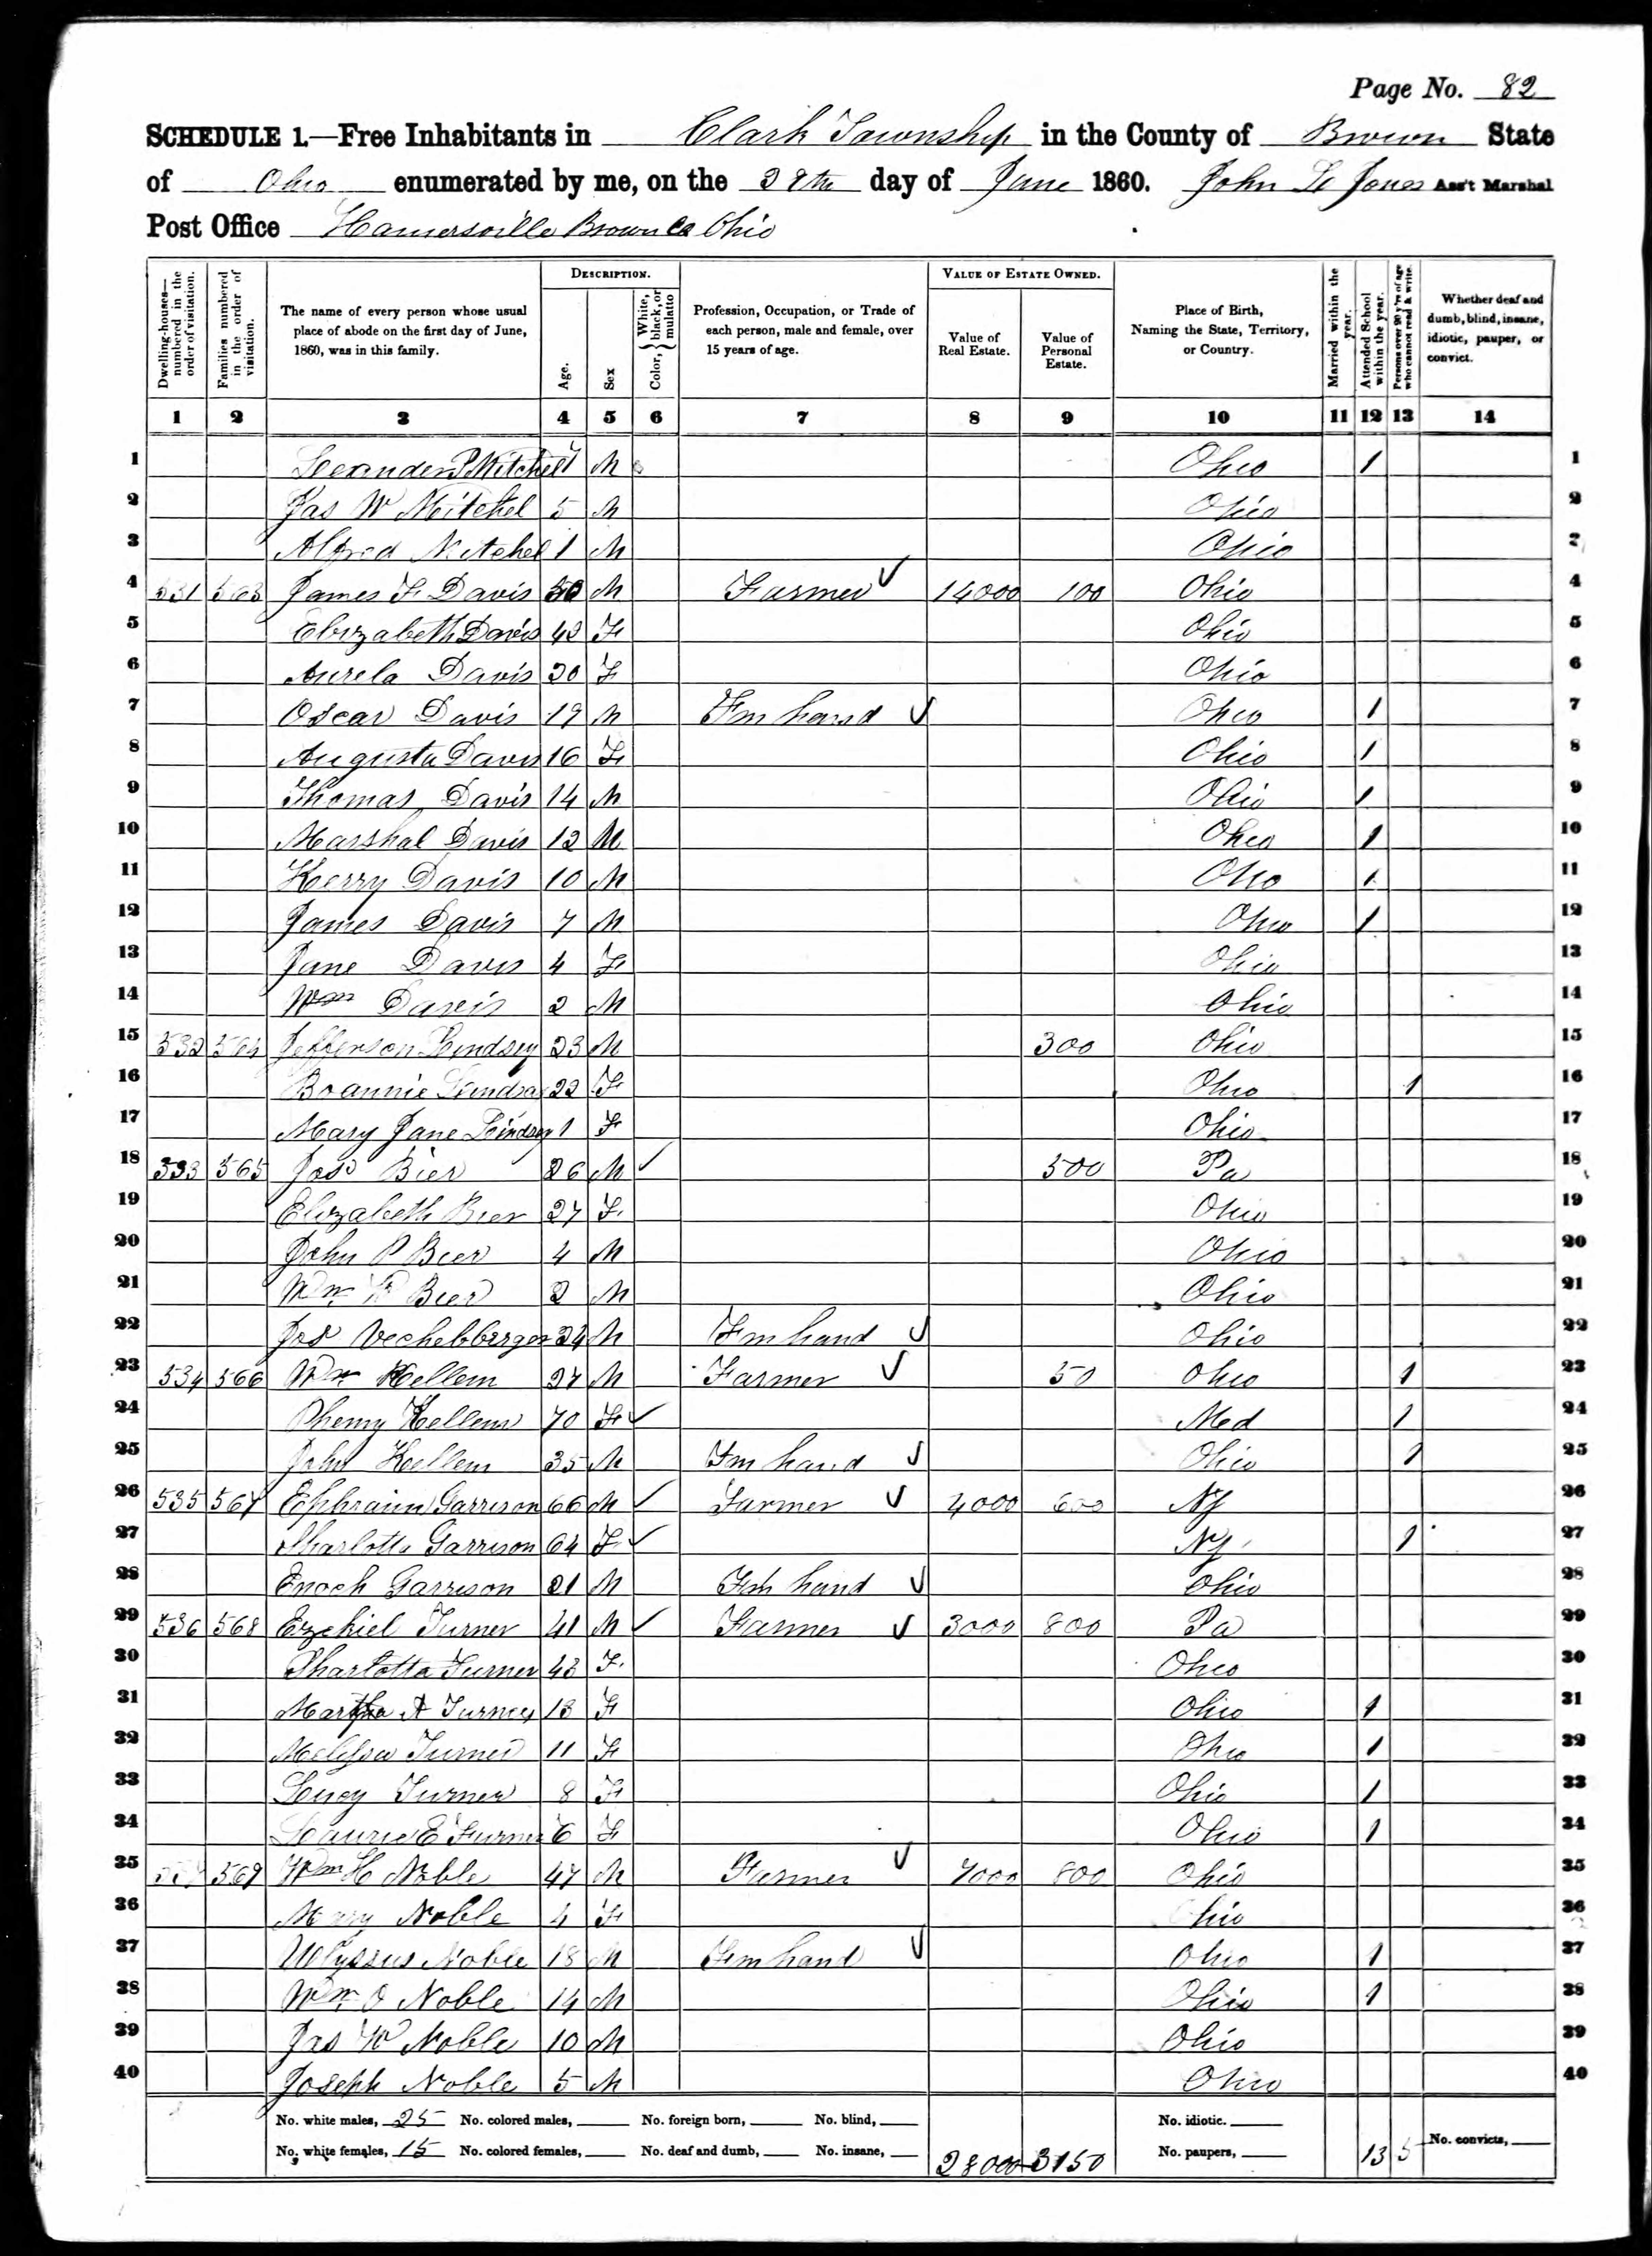 Page No. 82
SCHEDULE 1.—Free Inhabitants in Clark Township in the County of Brown State
of Ohio enumerated by me, on the 28th day of June 1860. John Jones Ass't Marshal
Post Office Hamersville Brown Co Ohio
Dwelling-houses—numbered in the order of visitation.
Families numbered in the order of visitation.
The name of every person whose usual place of abode on the first day of June, 1860, was in this family.
DESCRIPTION.
Age.
Sex
Color, { White, black, or mulatto
Profession, Occupation, or Trade of each person, male and female, over 15 years of age.
VALUE OF ESTATE OWNED.
Value of Real Estate.
Value of Personal Estate.
Place of Birth, Naming the State, Territory, or Country.
Married within the year.
Attended School within the year.
Persons over 20 y'rs of age who cannot read & write.
Whether deaf and dumb, blind, insane, idiotic, pauper, or convict.
1 2 3 4 5 6 7 8 9 10 11 12 13 14
1 Mitchel M Ohio 1 1
2 Jas W Mitchel 5 M Ohio 2
3 Alfred Mitchel 1 M Ohio
4 531 563 James F Davis 50 M Farmer 14000 100 Ohio 4
5 Elizabeth Davis 42 F Ohio 5
6 Aurela Davis 20 F Ohio 6
7 Oscar Davis 19 M Fm hand Ohio 1 7
8 Augusta Davis 16 F Ohio 1 8
9 Thomas Davis 14 M Ohio 1 9
10 Marshal Davis 12 M Ohio 1 10
11 Davis 10 M Ohio 1 11
12 James Davis 7 M Ohio 1 12
13 Jane Davis 4 F Ohio 13
14 Wm Davis 2 M Ohio 14
15 532 564 Jefferson Lindsey 23 M 300 Ohio 15
16 22 F Ohio 1 16
17 Mary Jane Lindsey 1 F Ohio 17
18 533 565 Jos Bier 26 M 500 Pa 18
19 Elizabeth Bier 27 F Ohio 19
20 John P Bier 4 M Ohio 20
21 Wm Bier 2 M Ohio 21
22 Jos 24 M Fm hand Ohio 22
23 534 566 Wm Kellem 27 M Farmer 50 Ohio 1 23
24 Phemy Kellem 70 F Med 1 24
25 John Kellem 35 M Fm hand Ohio 1 25
26 535 567 Ephraim Garrison 66 M Farmer 4000 600 NJ 26
27 Sharlotte Garrison 64 F NJ 1 27
28 Enoch Garrison 21 M Fm hand Ohio 28
29 536 568 Ezekiel Turner 41 M Farmer 3000 800 Pa 29
30 Sharlotta Turner 43 F Ohio 30
31 Martha A Turner 13 F Ohio 1 31
32 Melissa Turner 11 F Ohio 1 32
33 Lucy Turner 8 F Ohio 1 33
34 E Turner 6 F Ohio 1 34
35 569 Wm H Noble 47 M Farmer 7000 800 Ohio 35
36 Mary Noble F Ohio 36
37 Ulyssus Noble 18 M Fm hand Ohio 1 37
38 Wm O Noble 14 M Ohio 1 38
39 Jas W Noble 10 M Ohio 39
40 Joseph Noble 5 M Ohio 40
No. white males, 25 No. colored males, No. foreign born, No. blind, No. idiotic.
No. white females, 15 No. colored females, No. deaf and dumb, No. insane, 28000 3150 No. paupers, 13 5 No. convicts,